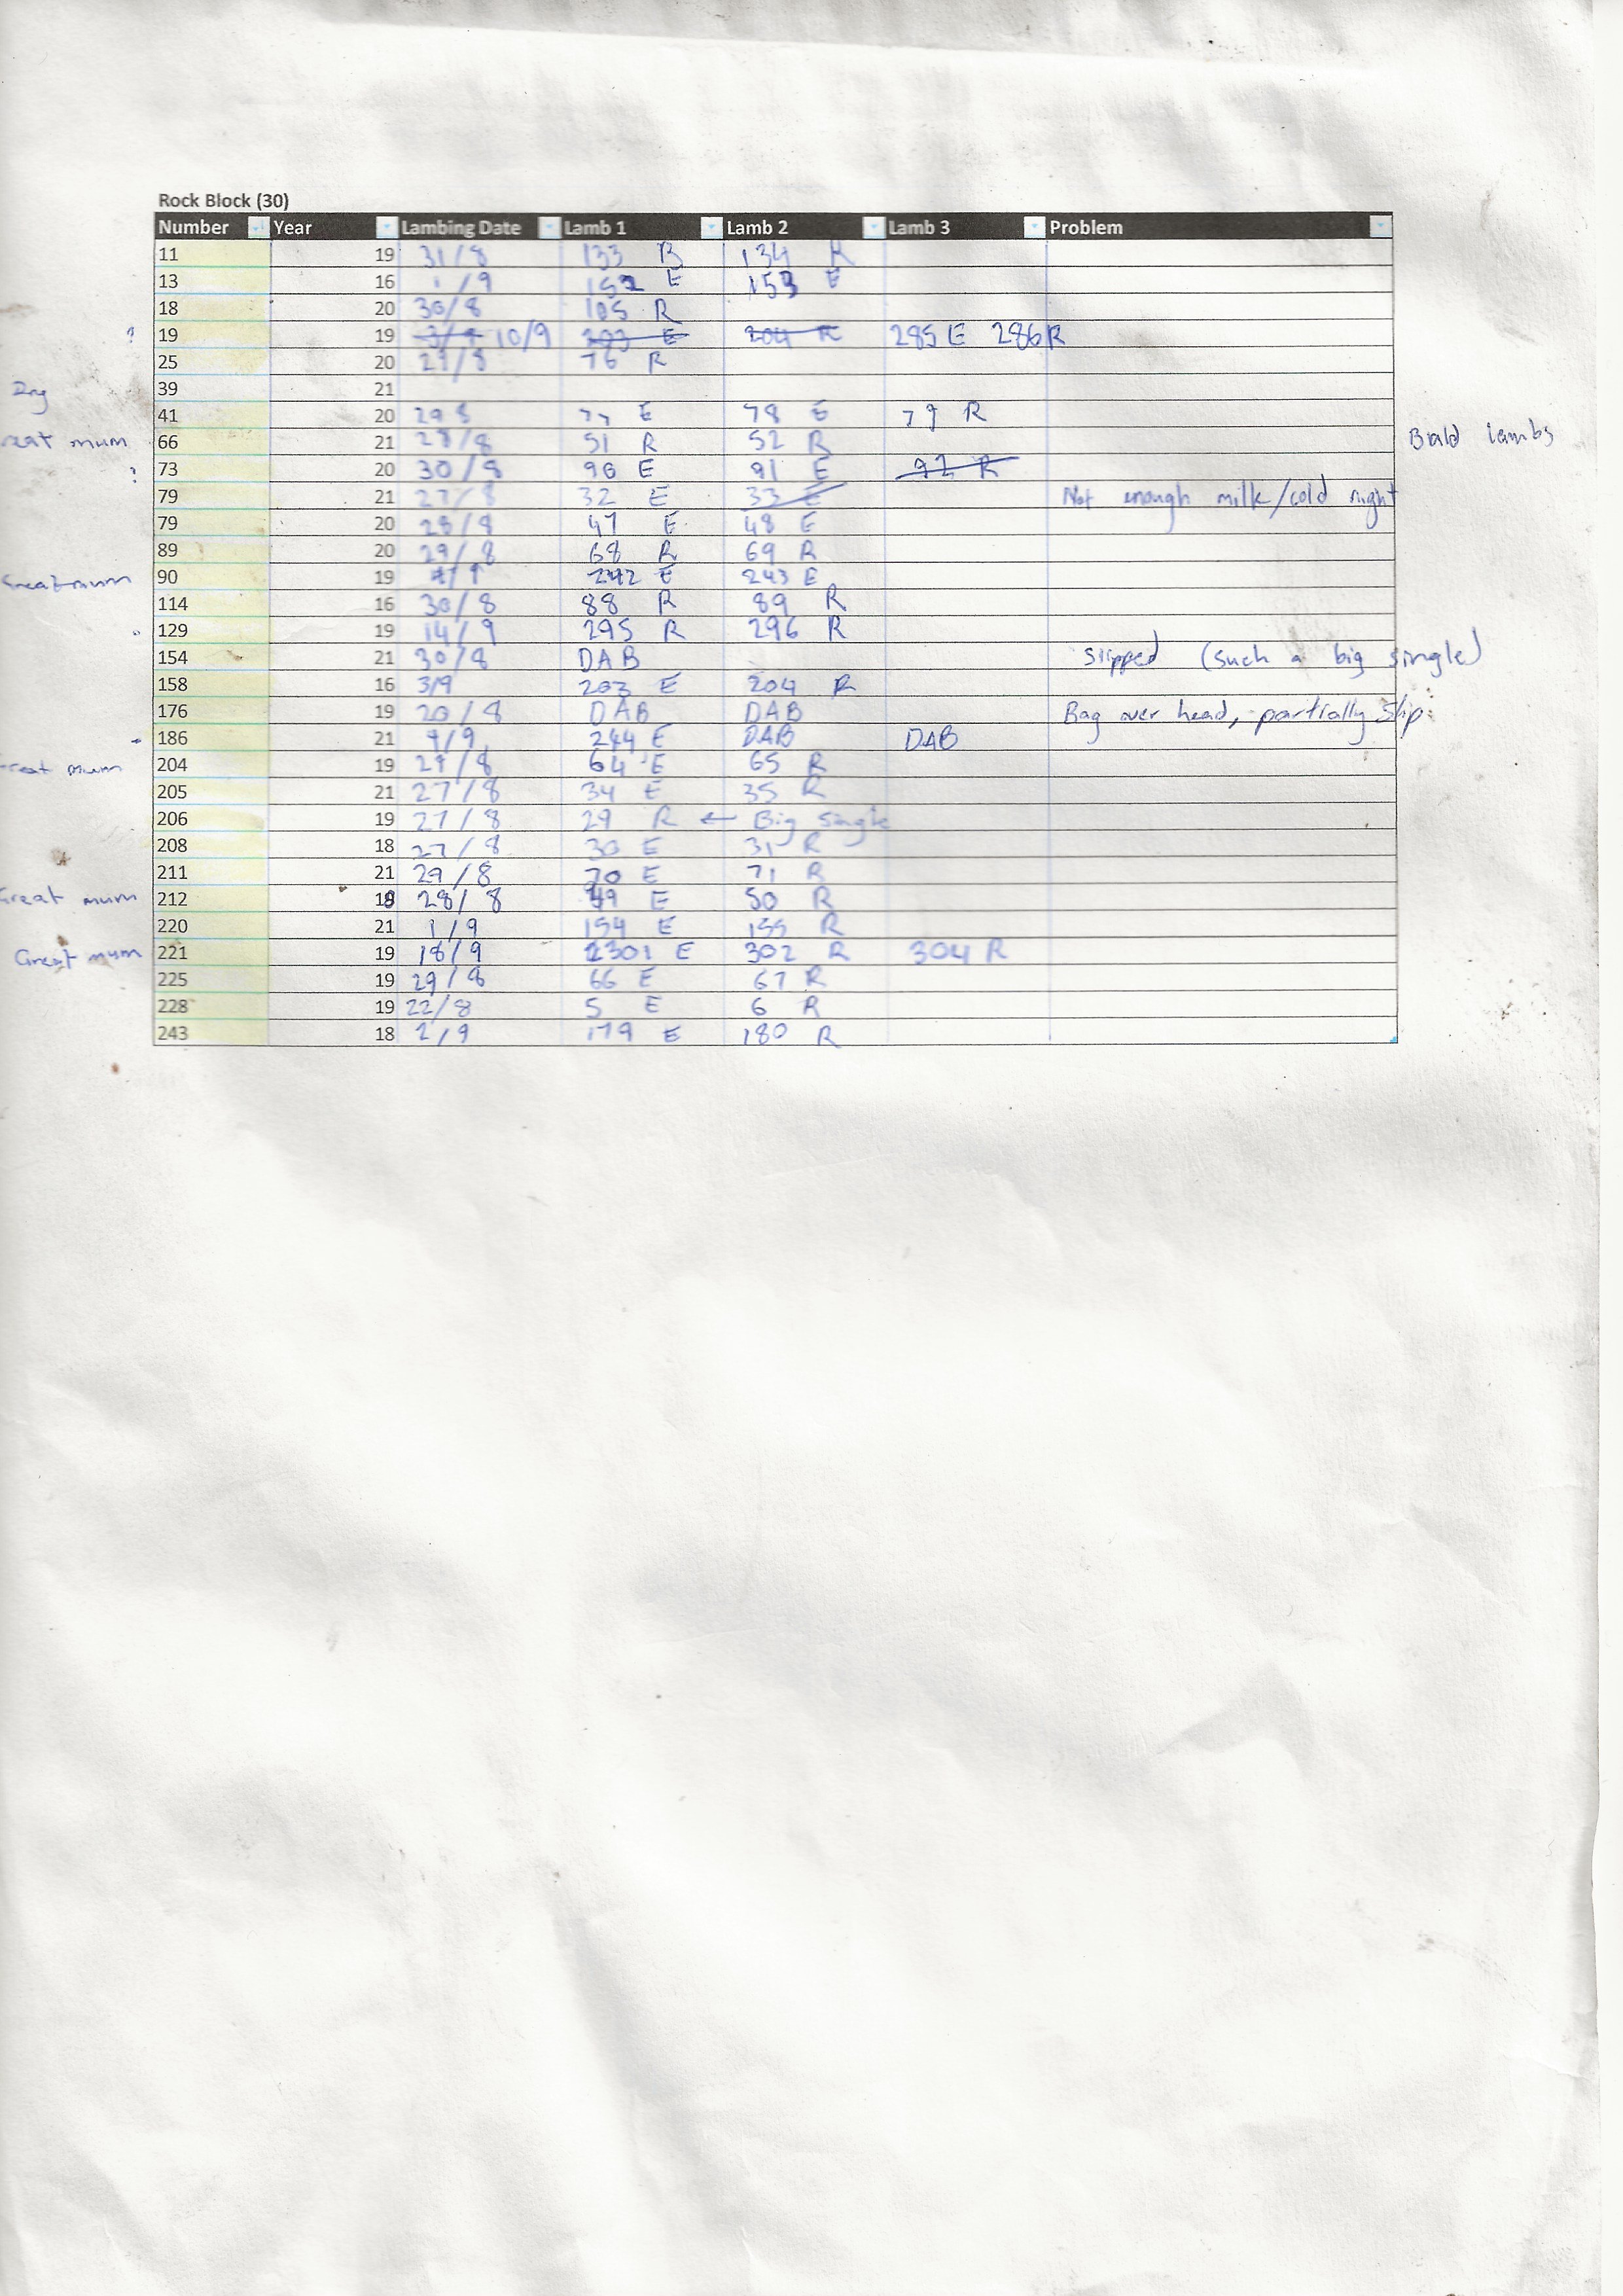 Rock Block (30)
Number Year Lambing Date Lamb 1 Lamb 2 Lamb 3 Problem
11 19 31/8 133 R 134 R
13 16 1/9 152 E 153 E
18 20 30/8 105 R
? 19 19 3/9 10/9 203 E 204 R 285 E 286 R
25 20 29/8 76 R
Dry 39 21
41 20 29 8 77 E 78 E 79 R
reat mum 66 21 28/8 51 R 52 R Bald lambs
? 73 20 30/8 90 E 91 E 92 R
79 21 27/8 32 E 33 E Not enough milk/cold night
79 20 28/8 47 E 48 E
89 20 29/8 68 R 69 R
Great mum 90 19 242 E 243 E
114 16 30/8 88 R 89 R
129 19 14/9 295 R 296 R
154 21 30/8 DAB slipped (such a big single)
158 16 3/9 203 E 204 R
176 19 20/8 DAB DAB Bag over head, partially slip
186 21 9/9 244 E DAB DAB
reat mum 204 19 29/8 64 E 65 R
205 21 27/8 34 E 35 R
206 19 27/8 29 R ← Big Single
208 18 27/8 30 E 31 R
211 21 29/8 70 E 71 R
Great mum 212 28/8 49 E 50 R
220 21 1/9 154 E 155 R
Great mum 221 19 18/9 301 E 302 R 304 R
225 19 29/8 66 E 67 R
228 19 22/8 5 E 6 R
243 18 2/9 179 E 180 R